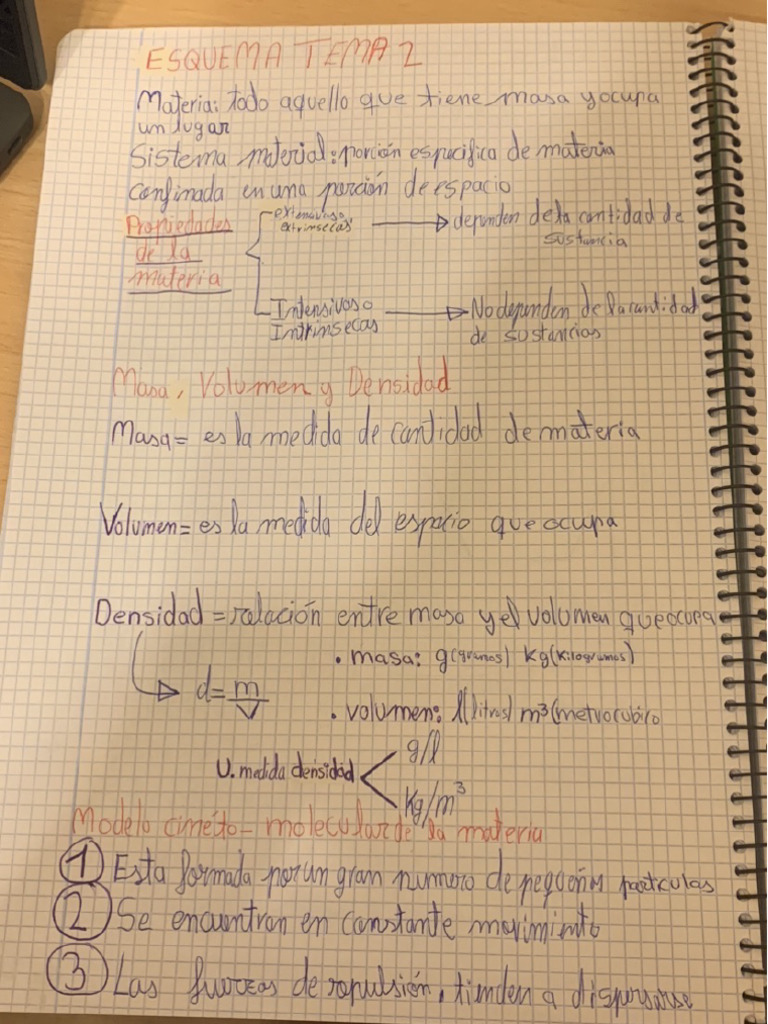 ESQUEMA TEMA 2
Materia: todo aquello que tiene masa y ocupa
un lugar
Sistema material: porción especifica de materia
confinada en una porción de espacio
Propiedades
de la
materia
extensivas o
extrinsecas
dependen de la cantidad de
sustancia
Intensivas o
Intrinsecas
No dependen de la cantidad
de sustancias
Masa, Volumen y Densidad
Masa = es la medida de cantidad de materia
Volumen = es la medida del espacio que ocupa
Densidad = relación entre masa y el volumen que ocupa
d = m
V
• masa: g (gramos) Kg (Kilogramos)
• volumen: l (litros) m³ (metro cubico
U. medida densidad
g/l
Kg/m³
Modelo cinéto - molecular de la materia
1 Esta formada por un gran numero de pequeñas particulas
2 Se encuentran en constante movimiento
3 Las fuerzas de repulsión, tienden a dispersarse